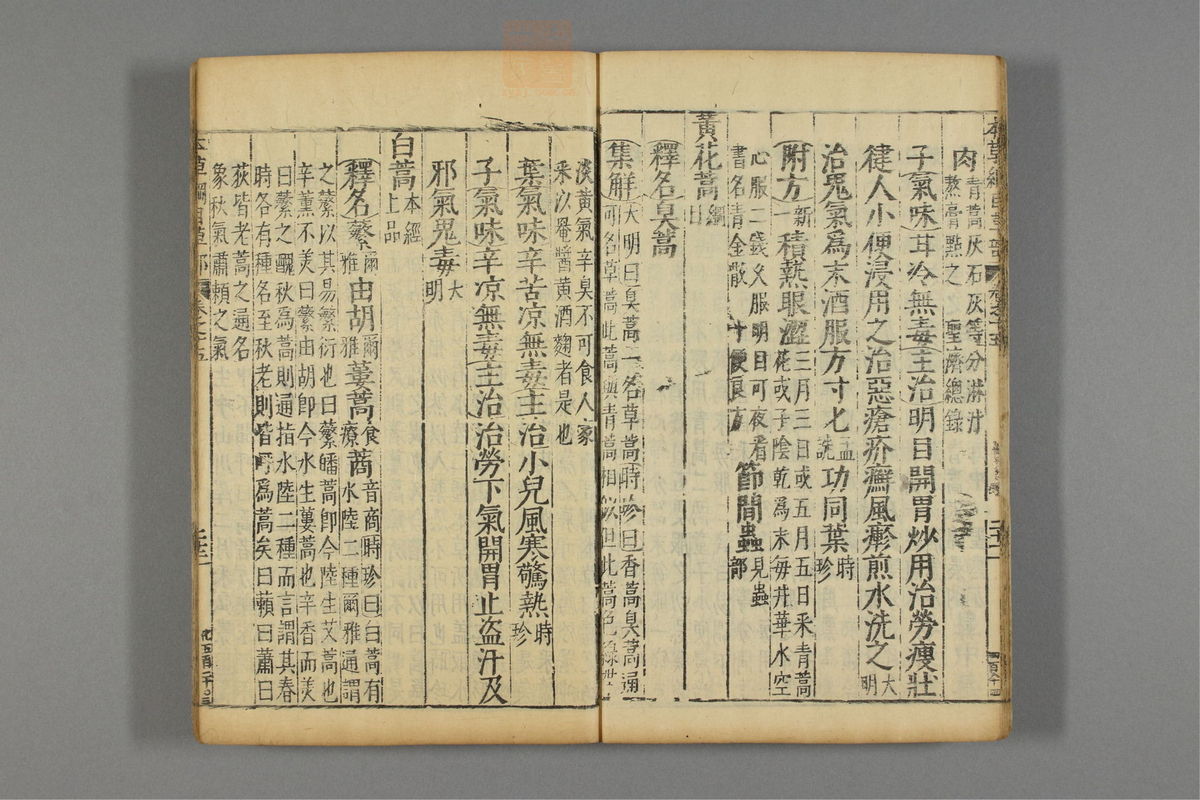 肉青蒿灰石灰等分淋汁
熬膏點之聖濟總錄
子氣味甘冷無毒主治明目開胃炒用治勞瘦壯
徤人小便浸用之治惡瘡疥癬風𤺋煎水洗之大
明
治鬼氣爲末酒服方寸匕孟
詵功同葉時
珍
附方新
一積熱眼澀三月三日或五月五日采青蒿
花或子陰乾爲末每井華水空
心服二錢久服明目可夜看
書名青金散十便良方節間蟲見蟲
部
黃花蒿綱
目
釋名臭蒿
集解大明曰臭蒿一名草蒿時珍曰香蒿臭蒿通
可名草蒿此蒿與青蒿相似但此蒿色綠帶
淡黃氣辛臭不可食人家
采以罨醬黃酒麴者是也
葉氣味辛苦凉無毒主治小兒風寒驚熱時
珍
子氣味辛凉無毒主治治勞下氣開胃止盜汗及
邪氣鬼毒大
明
白蒿本經
上品
釋名蘩爾
雅由胡爾
雅蔞蒿食
療蔏音商時珍曰白蒿有
水陸二種爾雅通謂
之蘩以其易蘩衍也曰蘩皤蒿卽今陸生艾蒿也
辛薰不美曰蘩由胡卽今水生蔞蒿也辛香而美
曰蘩之醜秋為蒿則通指水陸二種而言謂其春
時各有種名至秋老則皆呼爲蒿矣曰藾曰蕭曰
荻皆老蒿之通名
象秋氣肅賴之氣